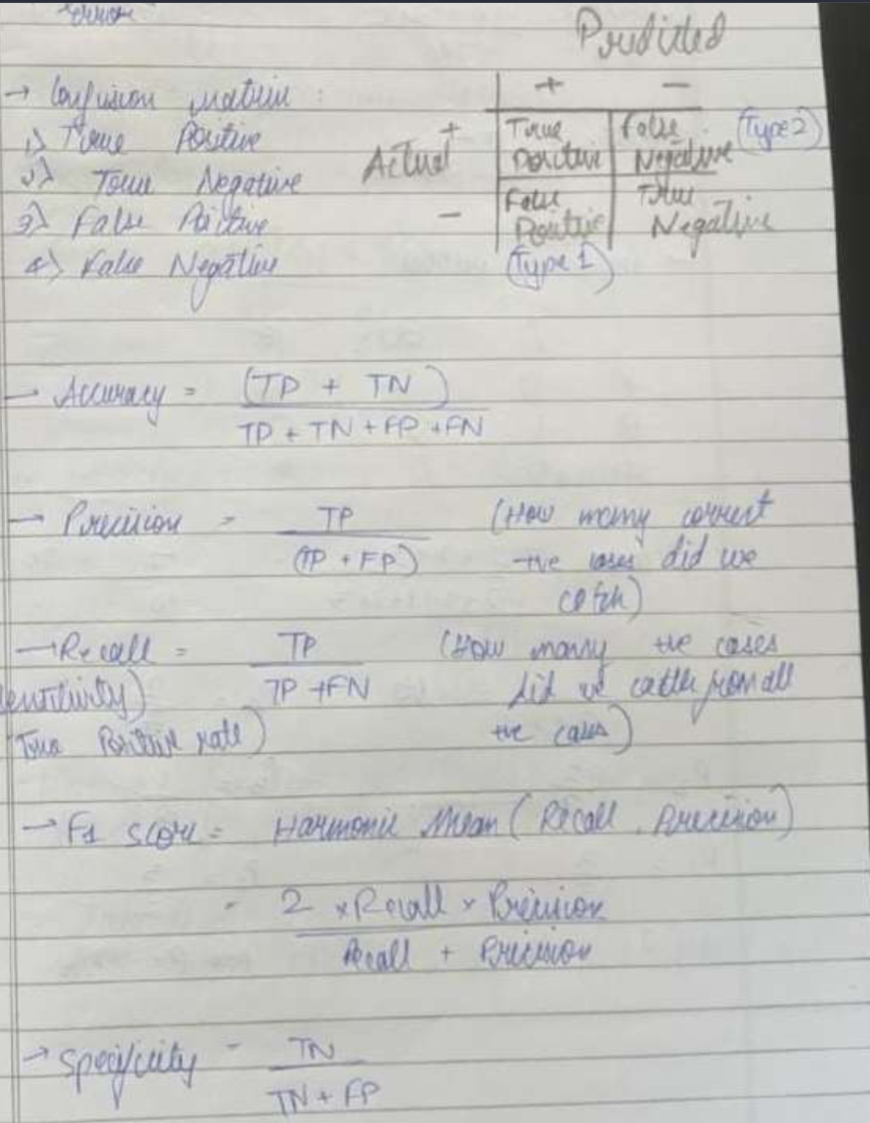 error
Predicted
+ -
→ Confusion matrix :
1) True Positive
2) True Negative
3) False Positive
4) False Negative
Actual + True Positive False Negative (Type 2)
- False Positive True Negative
(Type 1)
→ Accuracy = (TP + TN)
TP + TN + FP + FN
→ Precision = TP (How many correct
(TP + FP) +ve cases did we
catch)
→ Recall = TP (How many +ve cases
Sensitivity) TP + FN did we catch from all
True Positive rate) +ve cases)
→ F1 score = Harmonic Mean (Recall, Precision)
= 2 × Recall × Precision
Recall + Precision
→ Specificity = TN
TN + FP